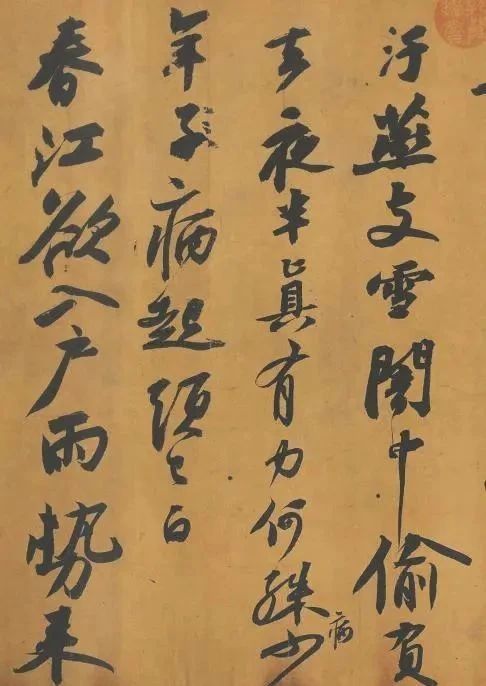 汙燕支雪闇中偷負
去夜半真有力何殊病少
年子病起頭已白
春江欲入户雨勢来